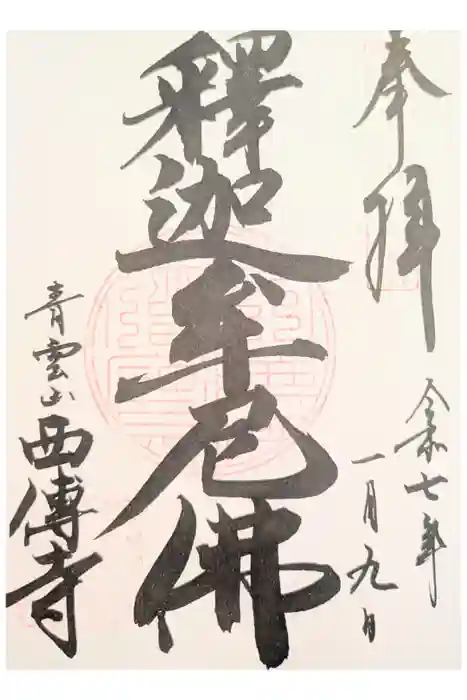 奉拝
令和七年
一月九日
釋迦牟尼佛
青雲山
西傳寺